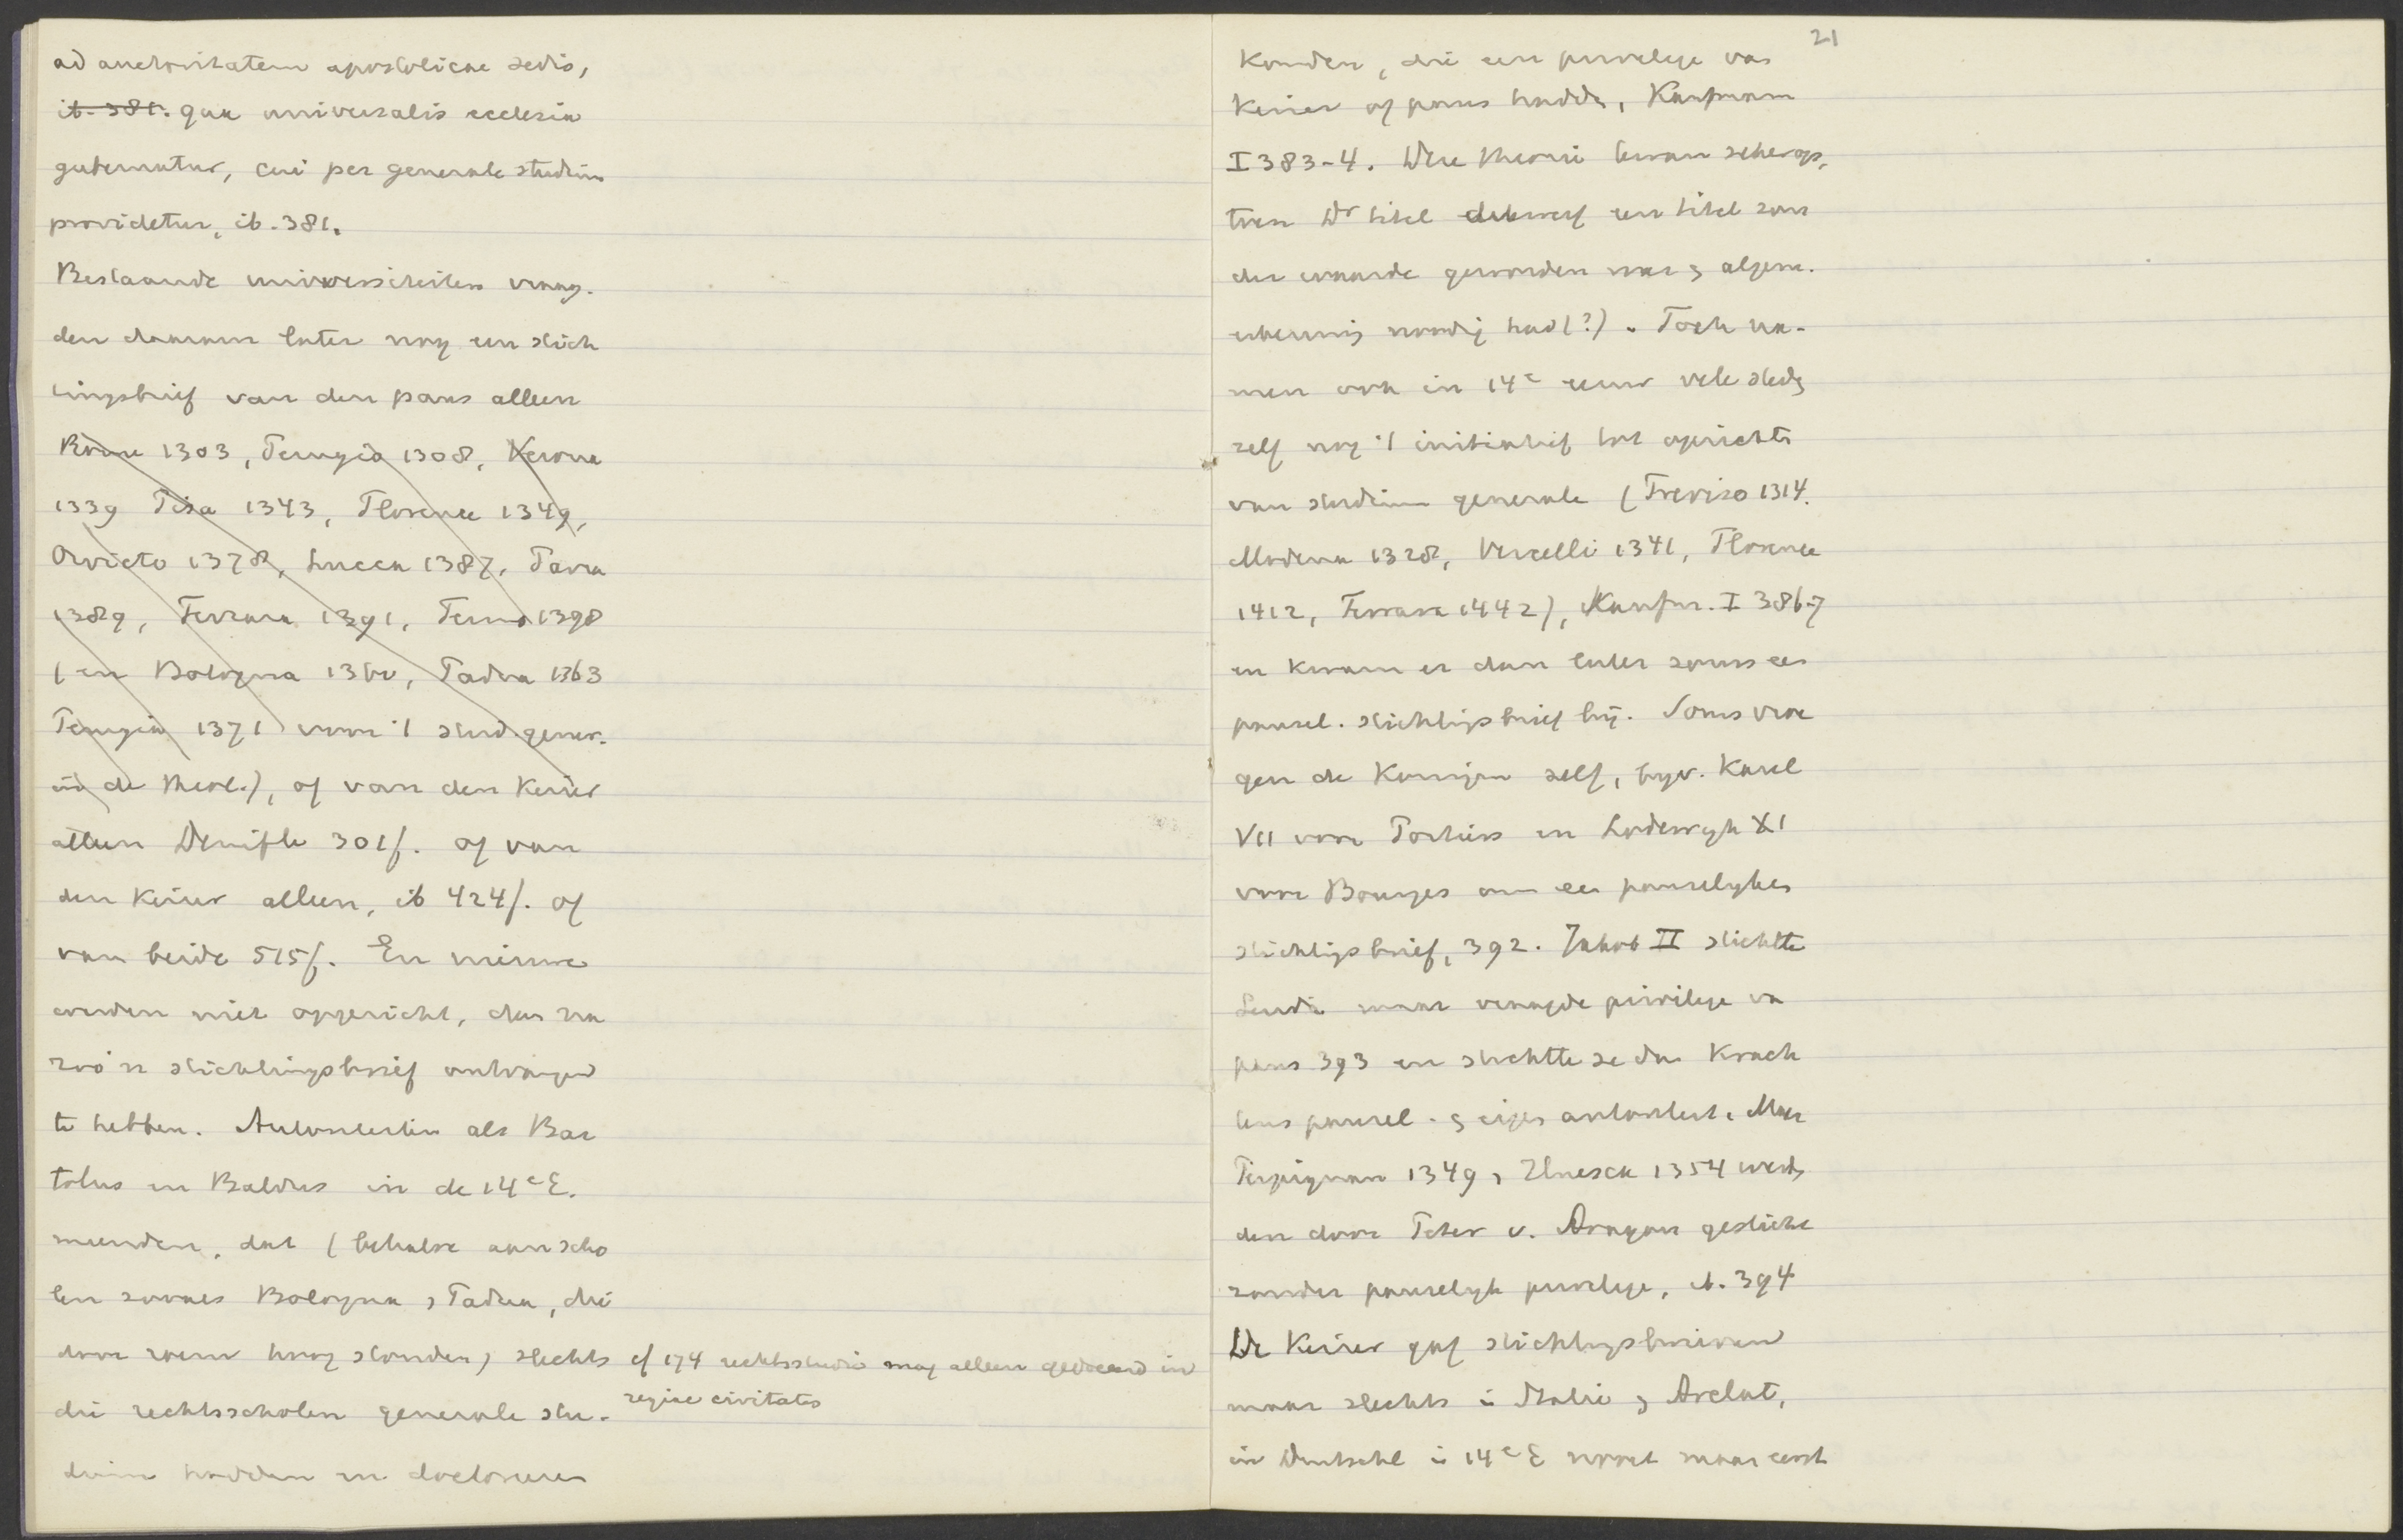 ad auctoritatem apostolicae sedis,
ib. 381. qua universalis ecclesia
gubernatur, cui per generale studium
providetur, ib. 381.
Bestaande universiteiten vraag-
den daarom later nog een stich
tingsbrief van den paus alleen
Rome 1303, Perugia 1308, Verona
1339 Pisa 1343, Florence 1349,
Orvieto 1378, Lucca 1387, Pavia
1389, Ferrara 1391, Fermo 1398
(en Bologna 1360, Padua 1363
Perugia 1371 voor 't stud. gener.
in de theol.), of van den Keizer
alleen Denifle 301f. of van
den Keizer alleen, ib 424f. of
van beide 515f. En nieuwe
werden niet opgericht, dan na
zoo'n stichtingsbrief ontvangen
te hebben. Autoriteiten als Bar
tolus en Baldus in de 14e E.
meenden, dat (behalve aan scho
len zooals Bologna, Padua, die
door roem hoog stonden) slechts
die rechtsscholen generale stu-
dium hadden en doctoreeren
cf 174 rechtsstudie mag alleen gedoceerd in
regiae civitates
21
konden, die een privilege van
Keizer of paus hadden, Kaufmann
I 383-4. Deze theorie kwam
der waarde geworden was & algem.
erkenning noodig had (?). Toch na-
men ook in 14e eeuw vele steden
zelf nog 't initiatief tot oprichten
van studium generale (Treviso 1314.
Modena 1328, Vercelli 1341, Florence
1412, Ferrara 1442), Kaufm. I 386-7
en kwam er dan later soms een
pausel. stichtingsbrief bij. Soms vroe
gen de Koningen zelf, bijv. Karel
VII voor Poitiers en Lodewijk XI
voor Bourges om een pauselijken
stichtingsbrief, 392. Jakob II stichtte
Lerida maar vraagde privilege va
paus 393 en stichtte ze dan krach
tens pausel. & eigen autoriteit. Maar
Perpignan 1349, Huesca 1354 werd
den door Peter v. Aragon gesticht
zonder pauselijk privilege, ib. 394
De Keizer gaf stichtingsbrieven
maar slechts in Italië & Arelat,
in Duitschl in 14e E nooit maar eerst